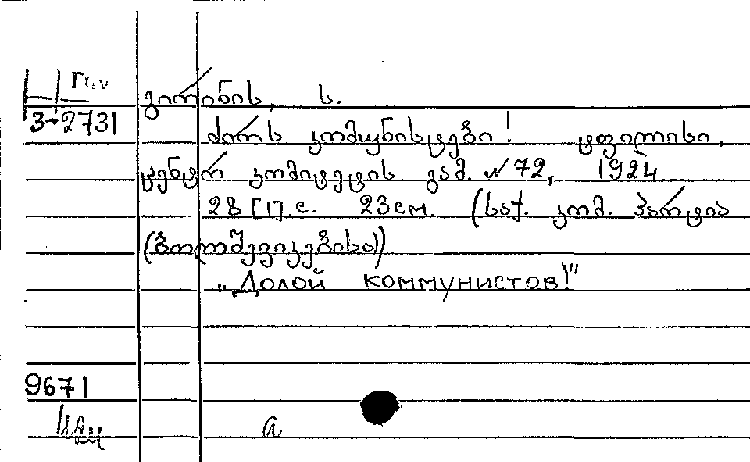 გორინის, ს.
3-2731
ძირს კომუნისტები! ტფილისი,
ცენტრ კომიტეტის გამ. №72, 1924
28 [1].с. 23см. (საქ. კომ. პარტია
(ბოლშევიკებისა))
„Долой коммунистов!"
9671
а